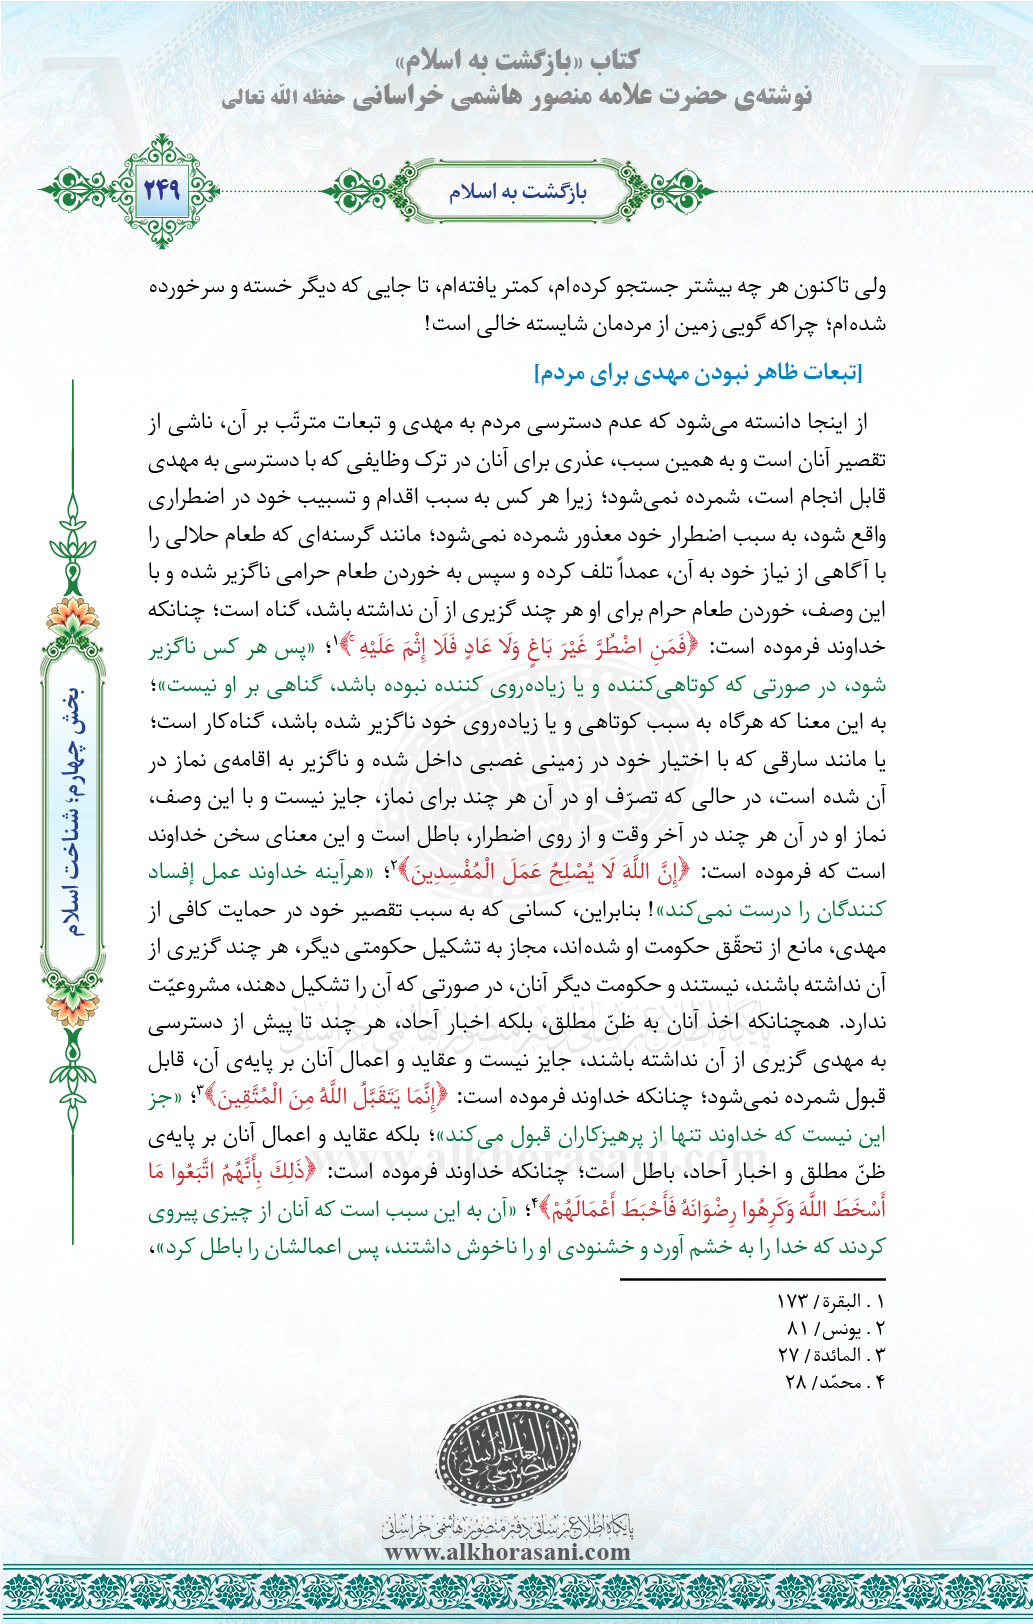 کتاب «بازگشت به اسلام»
نوشته‌ی حضرت علامه منصور هاشمی خراسانی حفظه الله تعالی
بازگشت به اسلام
۲۴۹
ولی تاکنون هر چه بیشتر جستجو کرده‌ام، کمتر یافته‌ام، تا جایی که دیگر خسته و سرخورده
شده‌ام؛ چراکه گویی زمین از مردمان شایسته خالی است!
[تبعات ظاهر نبودن مهدی برای مردم]
از اینجا دانسته می‌شود که عدم دسترسی مردم به مهدی و تبعات مترتّب بر آن، ناشی از
تقصیر آنان است و به همین سبب، عذری برای آنان در ترک وظایفی که با دسترسی به مهدی
قابل انجام است، شمرده نمی‌شود؛ زیرا هر کس به سبب اقدام و تسبیب خود در اضطراری
واقع شود، به سبب اضطرار خود معذور شمرده نمی‌شود؛ مانند گرسنه‌ای که طعام حلالی را
با آگاهی از نیاز خود به آن، عمداً تلف کرده و سپس به خوردن طعام حرامی ناگزیر شده و با
این وصف، خوردن طعام حرام برای او هر چند گزیری از آن نداشته باشد، گناه است؛ چنانکه
خداوند فرموده است: ﴿فَمَنِ اضْطُرَّ غَيْرَ بَاغٍ وَلَا عَادٍ فَلَا إِثْمَ عَلَيْهِ ۚ﴾۱؛ «پس هر کس ناگزیر
شود، در صورتی که کوتاهی‌کننده و یا زیاده‌روی کننده نبوده باشد، گناهی بر او نیست»؛
به این معنا که هرگاه به سبب کوتاهی و یا زیاده‌روی خود ناگزیر شده باشد، گناه‌کار است؛
یا مانند سارقی که با اختیار خود در زمینی غصبی داخل شده و ناگزیر به اقامه‌ی نماز در
آن شده است، در حالی که تصرّف او در آن هر چند برای نماز، جایز نیست و با این وصف،
نماز او در آن هر چند در آخر وقت و از روی اضطرار، باطل است و این معنای سخن خداوند
است که فرموده است: ﴿إِنَّ اللَّهَ لَا يُصْلِحُ عَمَلَ الْمُفْسِدِينَ﴾۲؛ «هرآینه خداوند عمل إفساد
کنندگان را درست نمی‌کند»! بنابراین، کسانی که به سبب تقصیر خود در حمایت کافی از
مهدی، مانع از تحقّق حکومت او شده‌اند، مجاز به تشکیل حکومتی دیگر، هر چند گزیری از
آن نداشته باشند، نیستند و حکومت دیگر آنان، در صورتی که آن را تشکیل دهند، مشروعیّت
ندارد. همچنانکه اخذ آنان به ظنّ مطلق، بلکه اخبار آحاد، هر چند تا پیش از دسترسی
به مهدی گزیری از آن نداشته باشند، جایز نیست و عقاید و اعمال آنان بر پایه‌ی آن، قابل
قبول شمرده نمی‌شود؛ چنانکه خداوند فرموده است: ﴿إِنَّمَا يَتَقَبَّلُ اللَّهُ مِنَ الْمُتَّقِينَ﴾۳؛ «جز
این نیست که خداوند تنها از پرهیزکاران قبول می‌کند»؛ بلکه عقاید و اعمال آنان بر پایه‌ی
ظنّ مطلق و اخبار آحاد، باطل است؛ چنانکه خداوند فرموده است: ﴿ذَلِكَ بِأَنَّهُمُ اتَّبَعُوا مَا
أَسْخَطَ اللَّهَ وَكَرِهُوا رِضْوَانَهُ فَأَحْبَطَ أَعْمَالَهُمْ﴾۴؛ «آن به این سبب است که آنان از چیزی پیروی
کردند که خدا را به خشم آورد و خشنودی او را ناخوش داشتند، پس اعمالشان را باطل کرد»،
۱ . البقرة/ ۱۷۳
۲ . یونس/ ۸۱
۳ . المائدة/ ۲۷
۴ . محمّد/ ۲۸
بخش چهارم؛ شناخت اسلام
پایگاه اطلاع‌رسانی دفتر منصور هاشمی خراسانی
www.alkhorasani.com
المنصور الهاشمی الخراسانی
پایگاه اطلاع‌رسانی دفتر منصور هاشمی خراسانی
www.alkhorasani.com